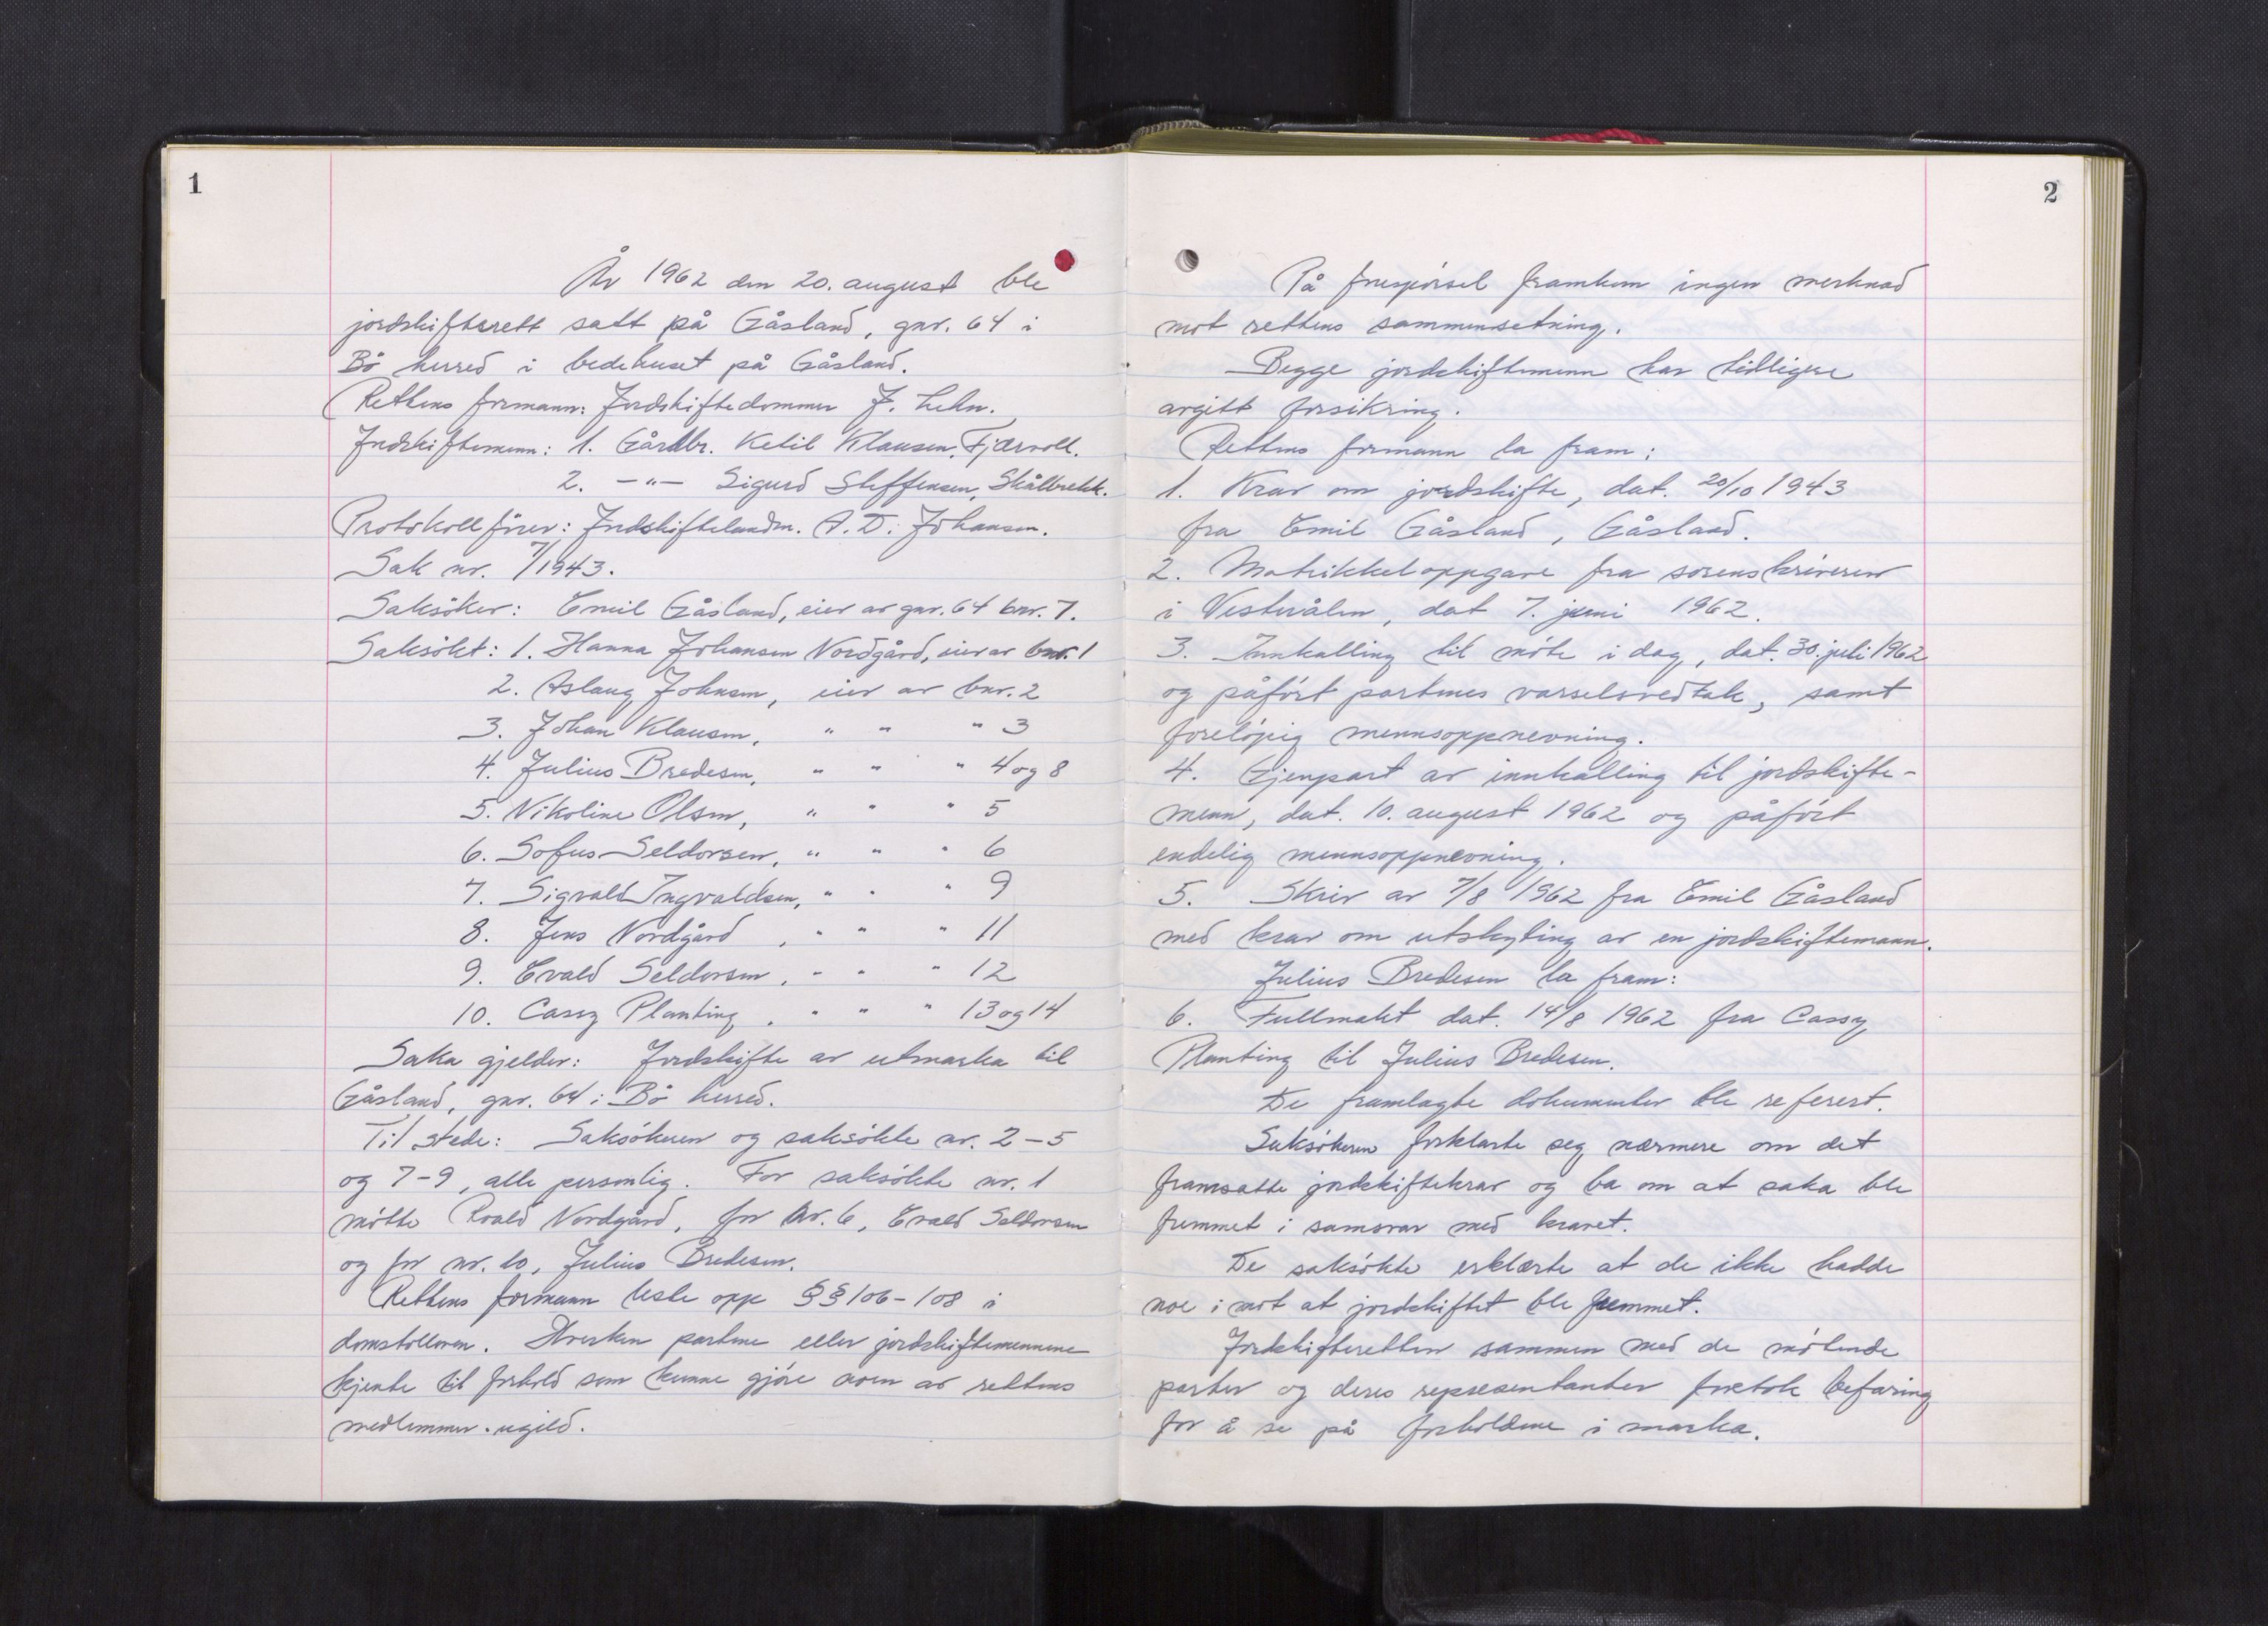 1
År 1962 den 20. august ble
jordskifterett satt på Gåsland, gnr. 64 i
Bö herred i bedehuset på Gåsland.
Rettens formann: Jordskiftedommer J. Lehn.
Jordskiftemenn: 1. Gårdbr. Ketil Klausen, Fjærvoll.
2. -"- Sigurd Steffensen, Skålbrekk.
Protokollförer: Jordskiftelandm. A. D. Johansen.
Sak nr. 7/1943.
Saksöker: Emil Gåsland, eier av gnr. 64 bnr. 7.
Saksökt: 1. Hanna Johansen Nordgård, eier av bnr. 1
2. Aslaug Johnsen, eier av bnr. 2
3. Johan Klausen, " " " 3
4. Julius Bredesen, " " " 4 og 8
5. Nikoline Olsen, " " " 5
6. Sofus Seldorsen, " " " 6
7. Sigvald Ingvaldsen, " " " 9
8. Jens Nordgård, " " " 11
9. Evald Seldorsen, " " " 12
10. Cassy Planting, " " " 13 og 14
Saka gjelder: Jordskifte av utmarka til
Gåsland, gnr. 64 i Bö herred.
Til stede: Saksökeren og saksökte nr. 2-5
og 7-9, alle personlig. For saksökte nr. 1
mötte Roald Nordgård, for nr. 6, Evald Seldorsen
og for nr. 10, Julius Bredesen.
Rettens formann leste opp §§ 106-108 i
domstolloven. Hverken partene eller jordskiftemennene
kjente til forhold som kunne gjöre noen av rettens
medlemmer ugild.
2
På forespörsel framkom ingen merknad
mot rettens sammensetning.
Begge jordskiftemenn har tidligere
avgitt forsikring.
Rettens formann la fram:
1. Krav om jordskifte, dat. 20/10 1943
fra Emil Gåsland, Gåsland.
2. Matrikkeloppgave fra sorenskriveren
i Vesterålen, dat 7. juni 1962.
3. Innkalling til möte i dag, dat. 30. juli 1962
og påfört partenes varselsvedtak, samt
forelöpig mennsoppnevning.
4. Gjenpart av innkalling til jordskifte-
menn, dat. 10. august 1962 og påfört
endelig mennsoppnevning.
5. Skriv av 7/8 1962 fra Emil Gåsland
med krav om utskyting av en jordskiftemann.
Julius Bredesen la fram:
6. Fullmakt dat. 14/8 1962 fra Cassy
Planting til Julius Bredesen.
De framlagte dokumenter ble referert.
Saksökeren forklarte seg nærmere om det
framsatte jordskiftekrav og ba om at saka ble
fremmet i samsvar med kravet.
De saksökte erklærte at de ikke hadde
noe i mot at jordskiftet ble fremmet.
Jordskifteretten sammen med de mötende
parter og deres representanter foretok befaring
for å se på forholdene i marka.